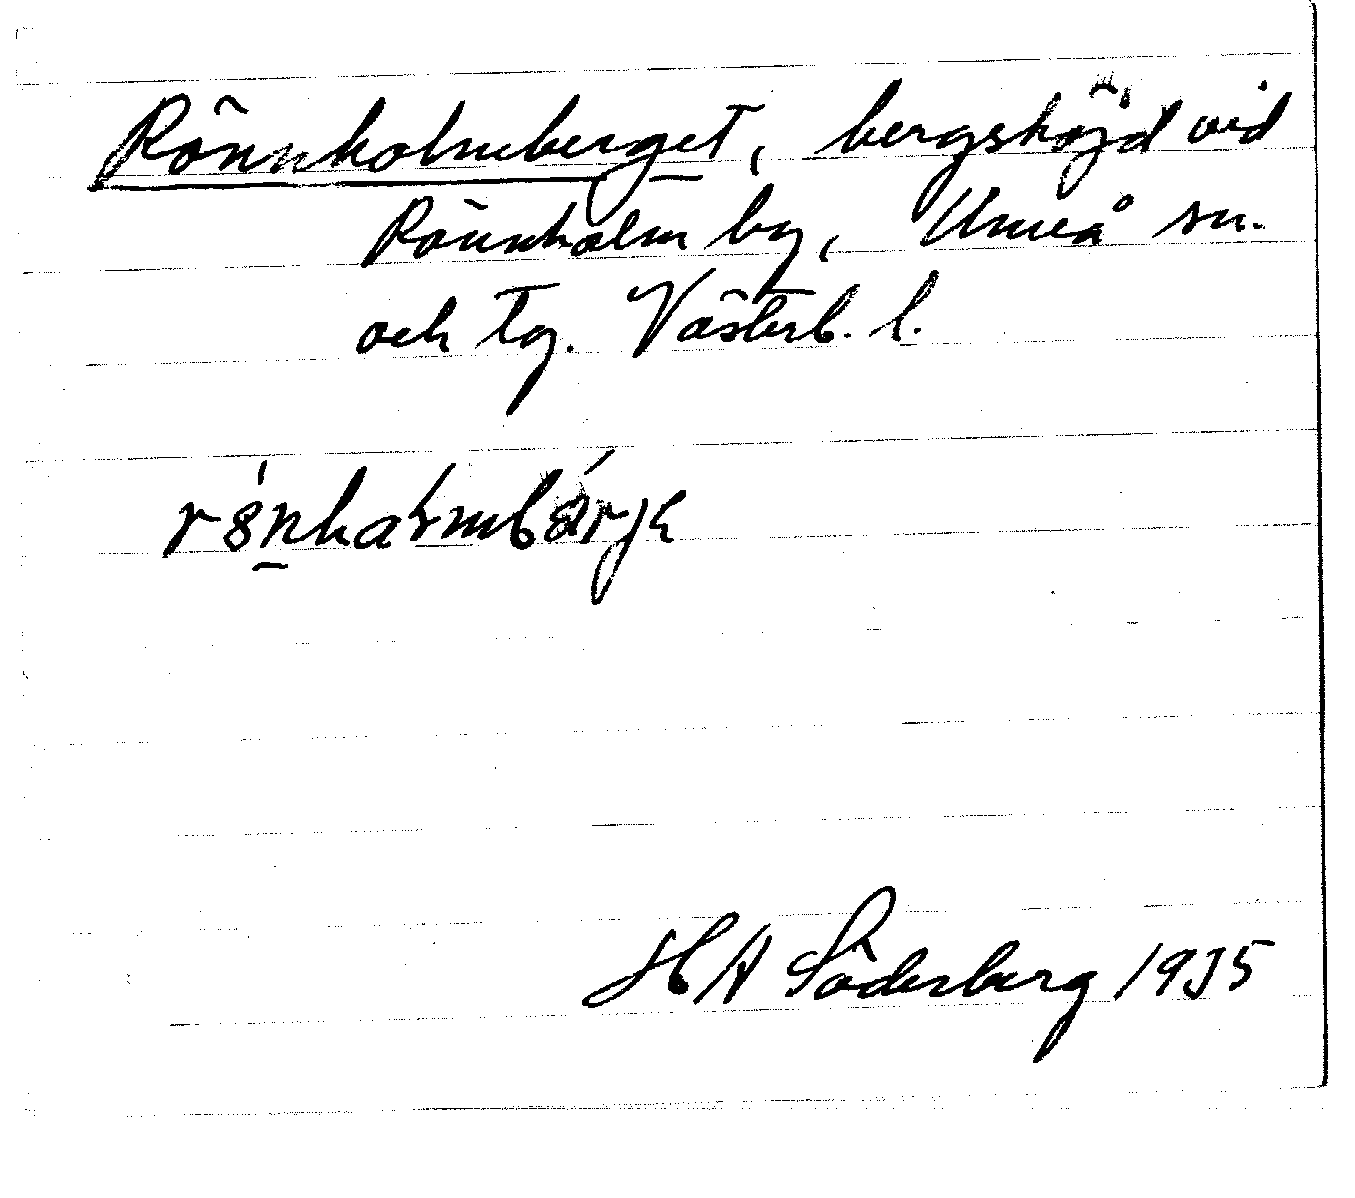 Rönnholmberget, bergshöjd vid
Rönnholm by, Umeå sn.
och tg. Västerb. l.
HA Söderberg 1935